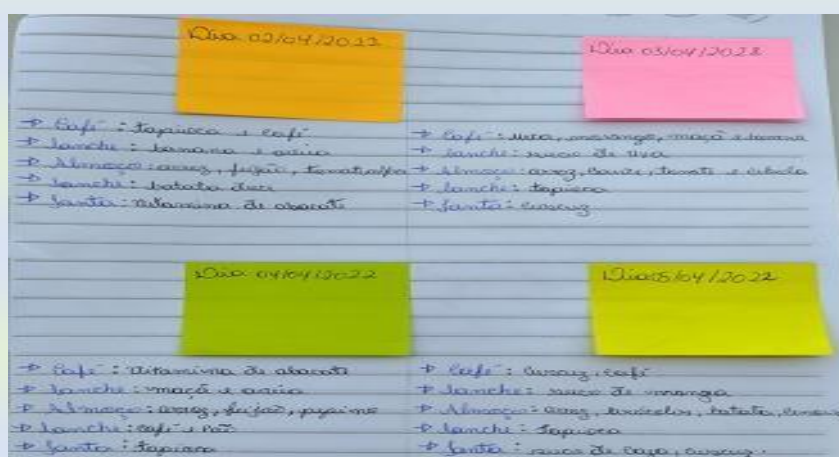 Dia 02/04/2022
→ Café: tapioca e café
→ lanche: banana e aveia
→ Almoço: arroz, feijão, tomate
→ lanche: batata doce
→ Janta: vitamina de abacate
Dia 03/04/2022
→ Café: uva, morango, maçã e banana
→ lanche: suco de uva
→ Almoço: arroz, tomate e cebola
→ lanche: tapioca
→ Janta: cuscuz
Dia 04/04/2022
→ Café: vitamina de abacate
→ lanche: maçã e aveia
→ Almoço: arroz, feijão, pepino
→ lanche: café e Pão
→ Janta: tapioca
Dia 05/04/2022
→ Café: cuscuz, café
→ lanche: suco de manga
→ Almoço: arroz, brócolis, batata
→ lanche: tapioca
→ Janta: suco de caja, cuscuz.